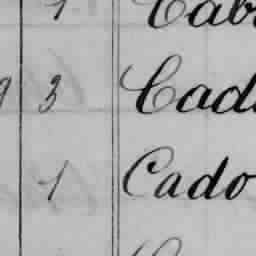 1 Cab
9 3 Cad
1 Cado